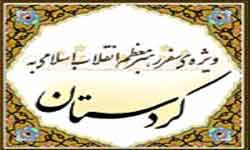 ویژه‌ی سفر رهبر معظم انقلاب اسلامی به
کردستان